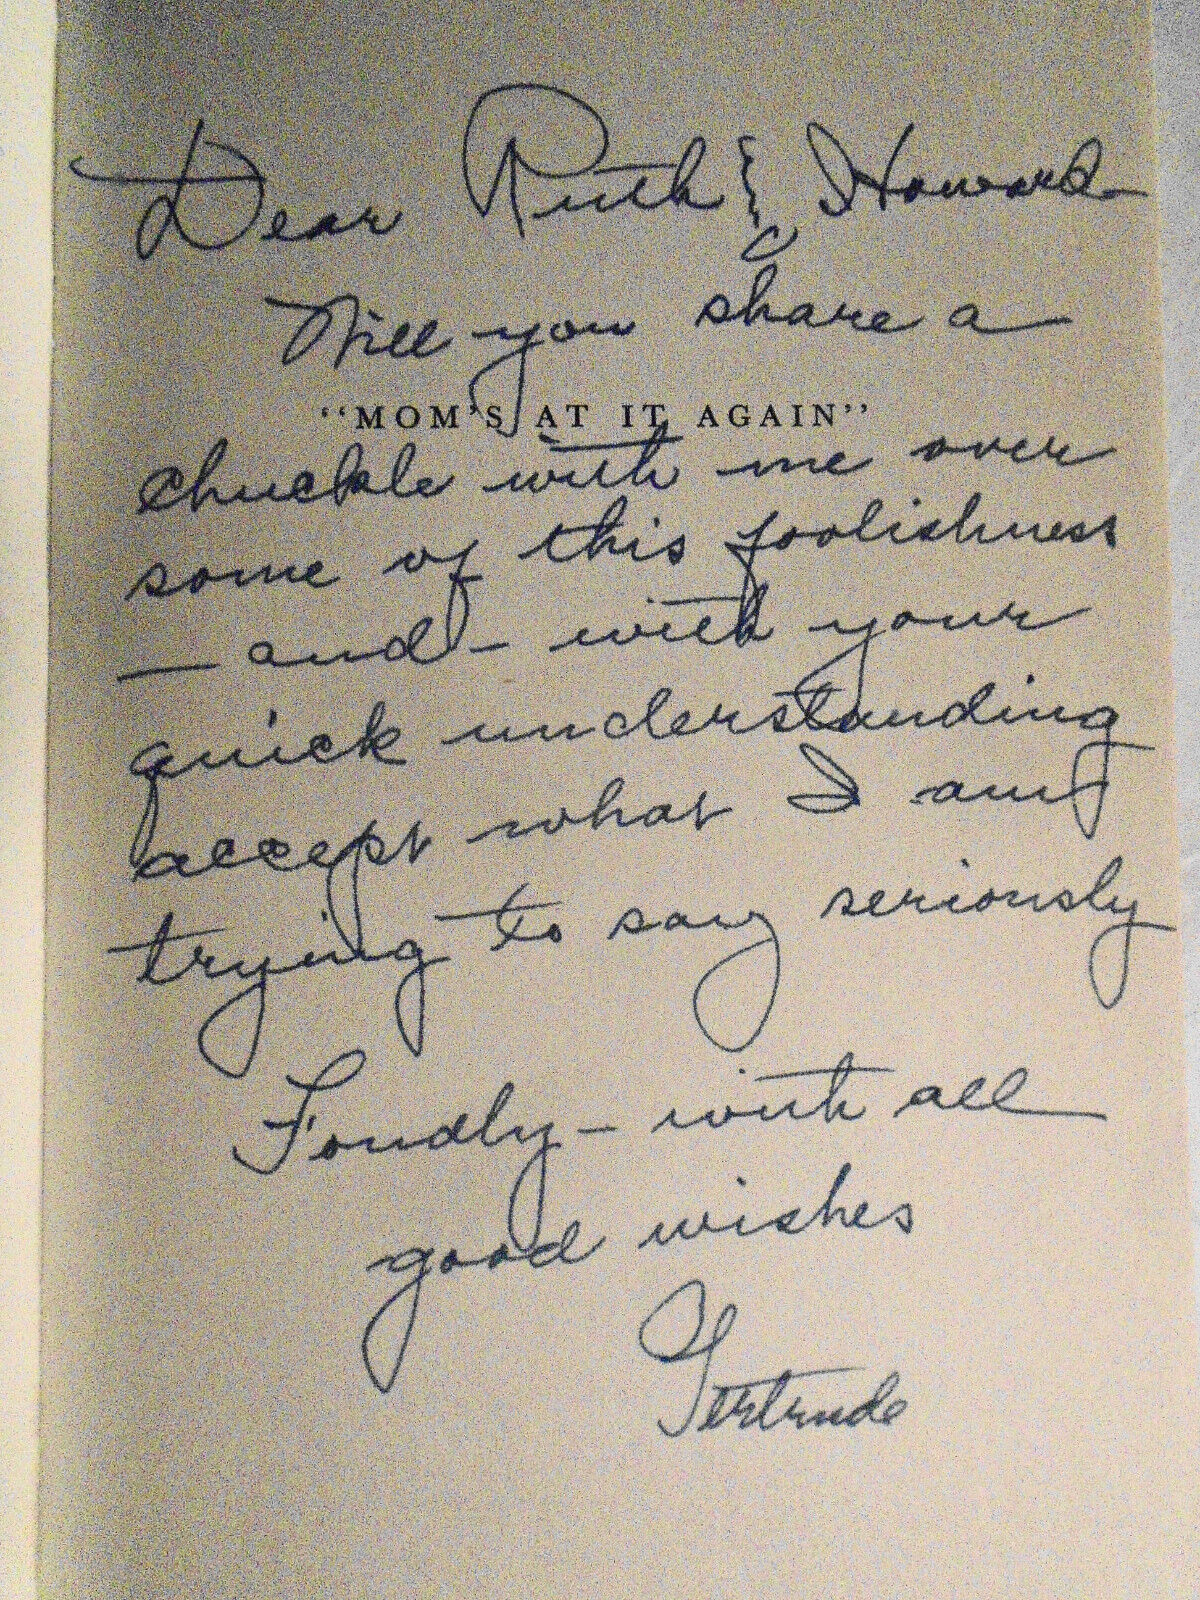 Dear Ruth & Howard
Will you share a
"MOM'S AT IT AGAIN"
chuckle with me over
some of this foolishness
— and — with your
quick understanding
accept what I am
trying to say seriously
Fondly — with all
good wishes
Gertrude